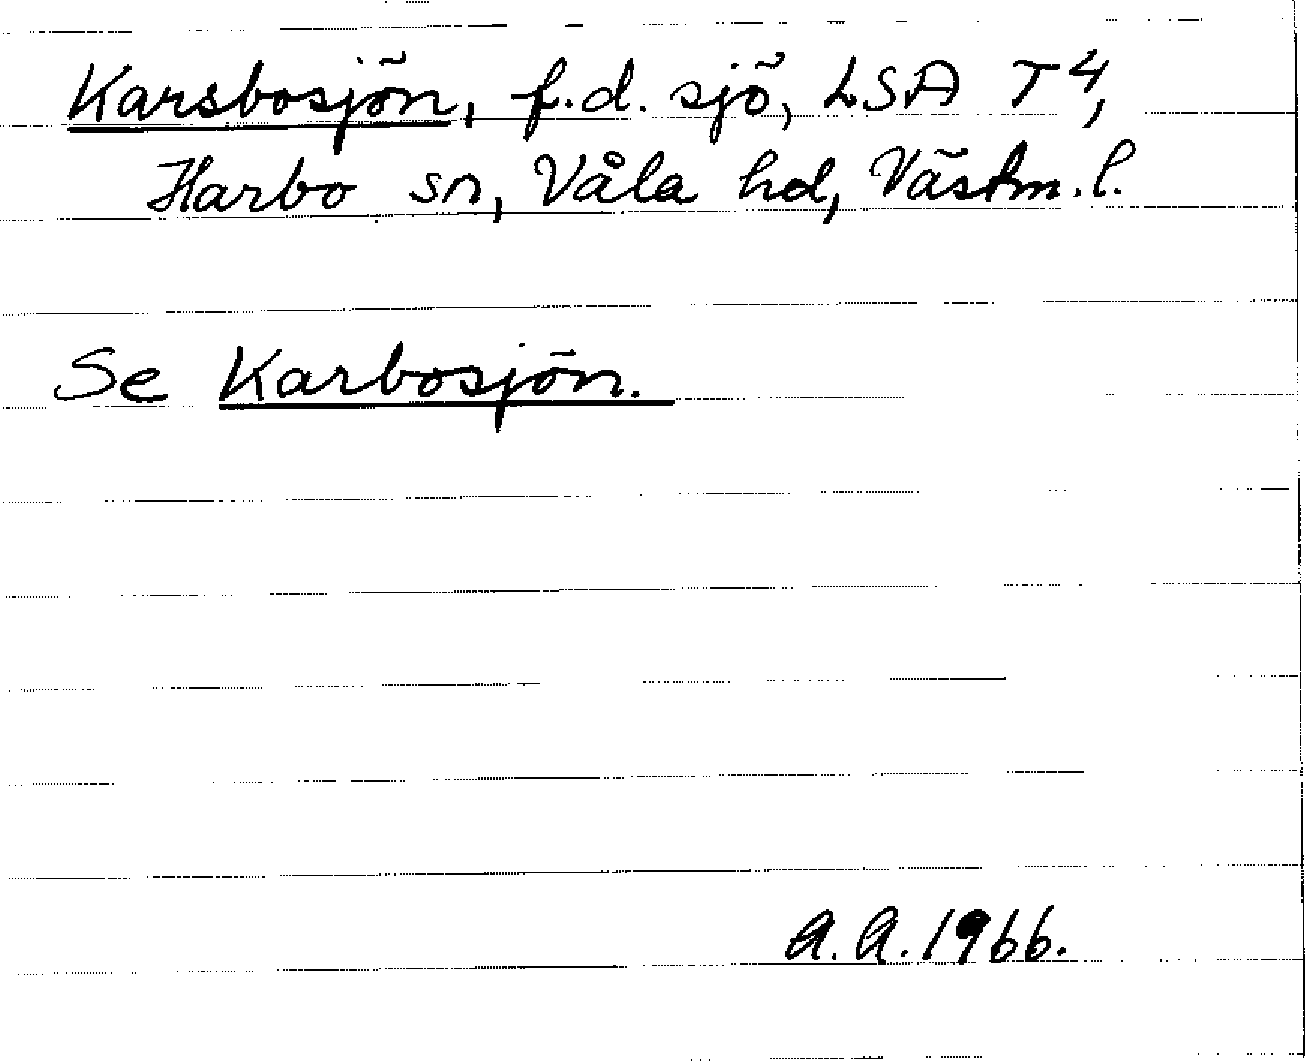 Karsbosjön, f.d. sjö, LSA T4,
Harbo sn, Våla hd, Västm. l.
Se Karbosjön.
A.A. 1966.